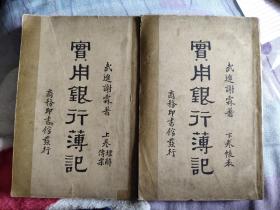 武進謝霖著
實用銀行薄記
上卷理論
傳票
商務印書館發行
武進謝霖著
實用銀行薄記
下卷帳表
商務印書館發行